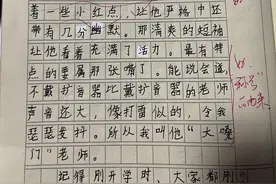 着一些小红点，让他严格中还
带有几分幽默。那清爽的短袖
让他看着充满了活力。最有特
点的要属那张嘴了。能说会道，
不戴扩音器比戴扩音器的老师
声音还大，像打雷似的，令我
琵琶发抖。所以我叫他“大嗓
门”老师。
记得刚开学时，大家都刚